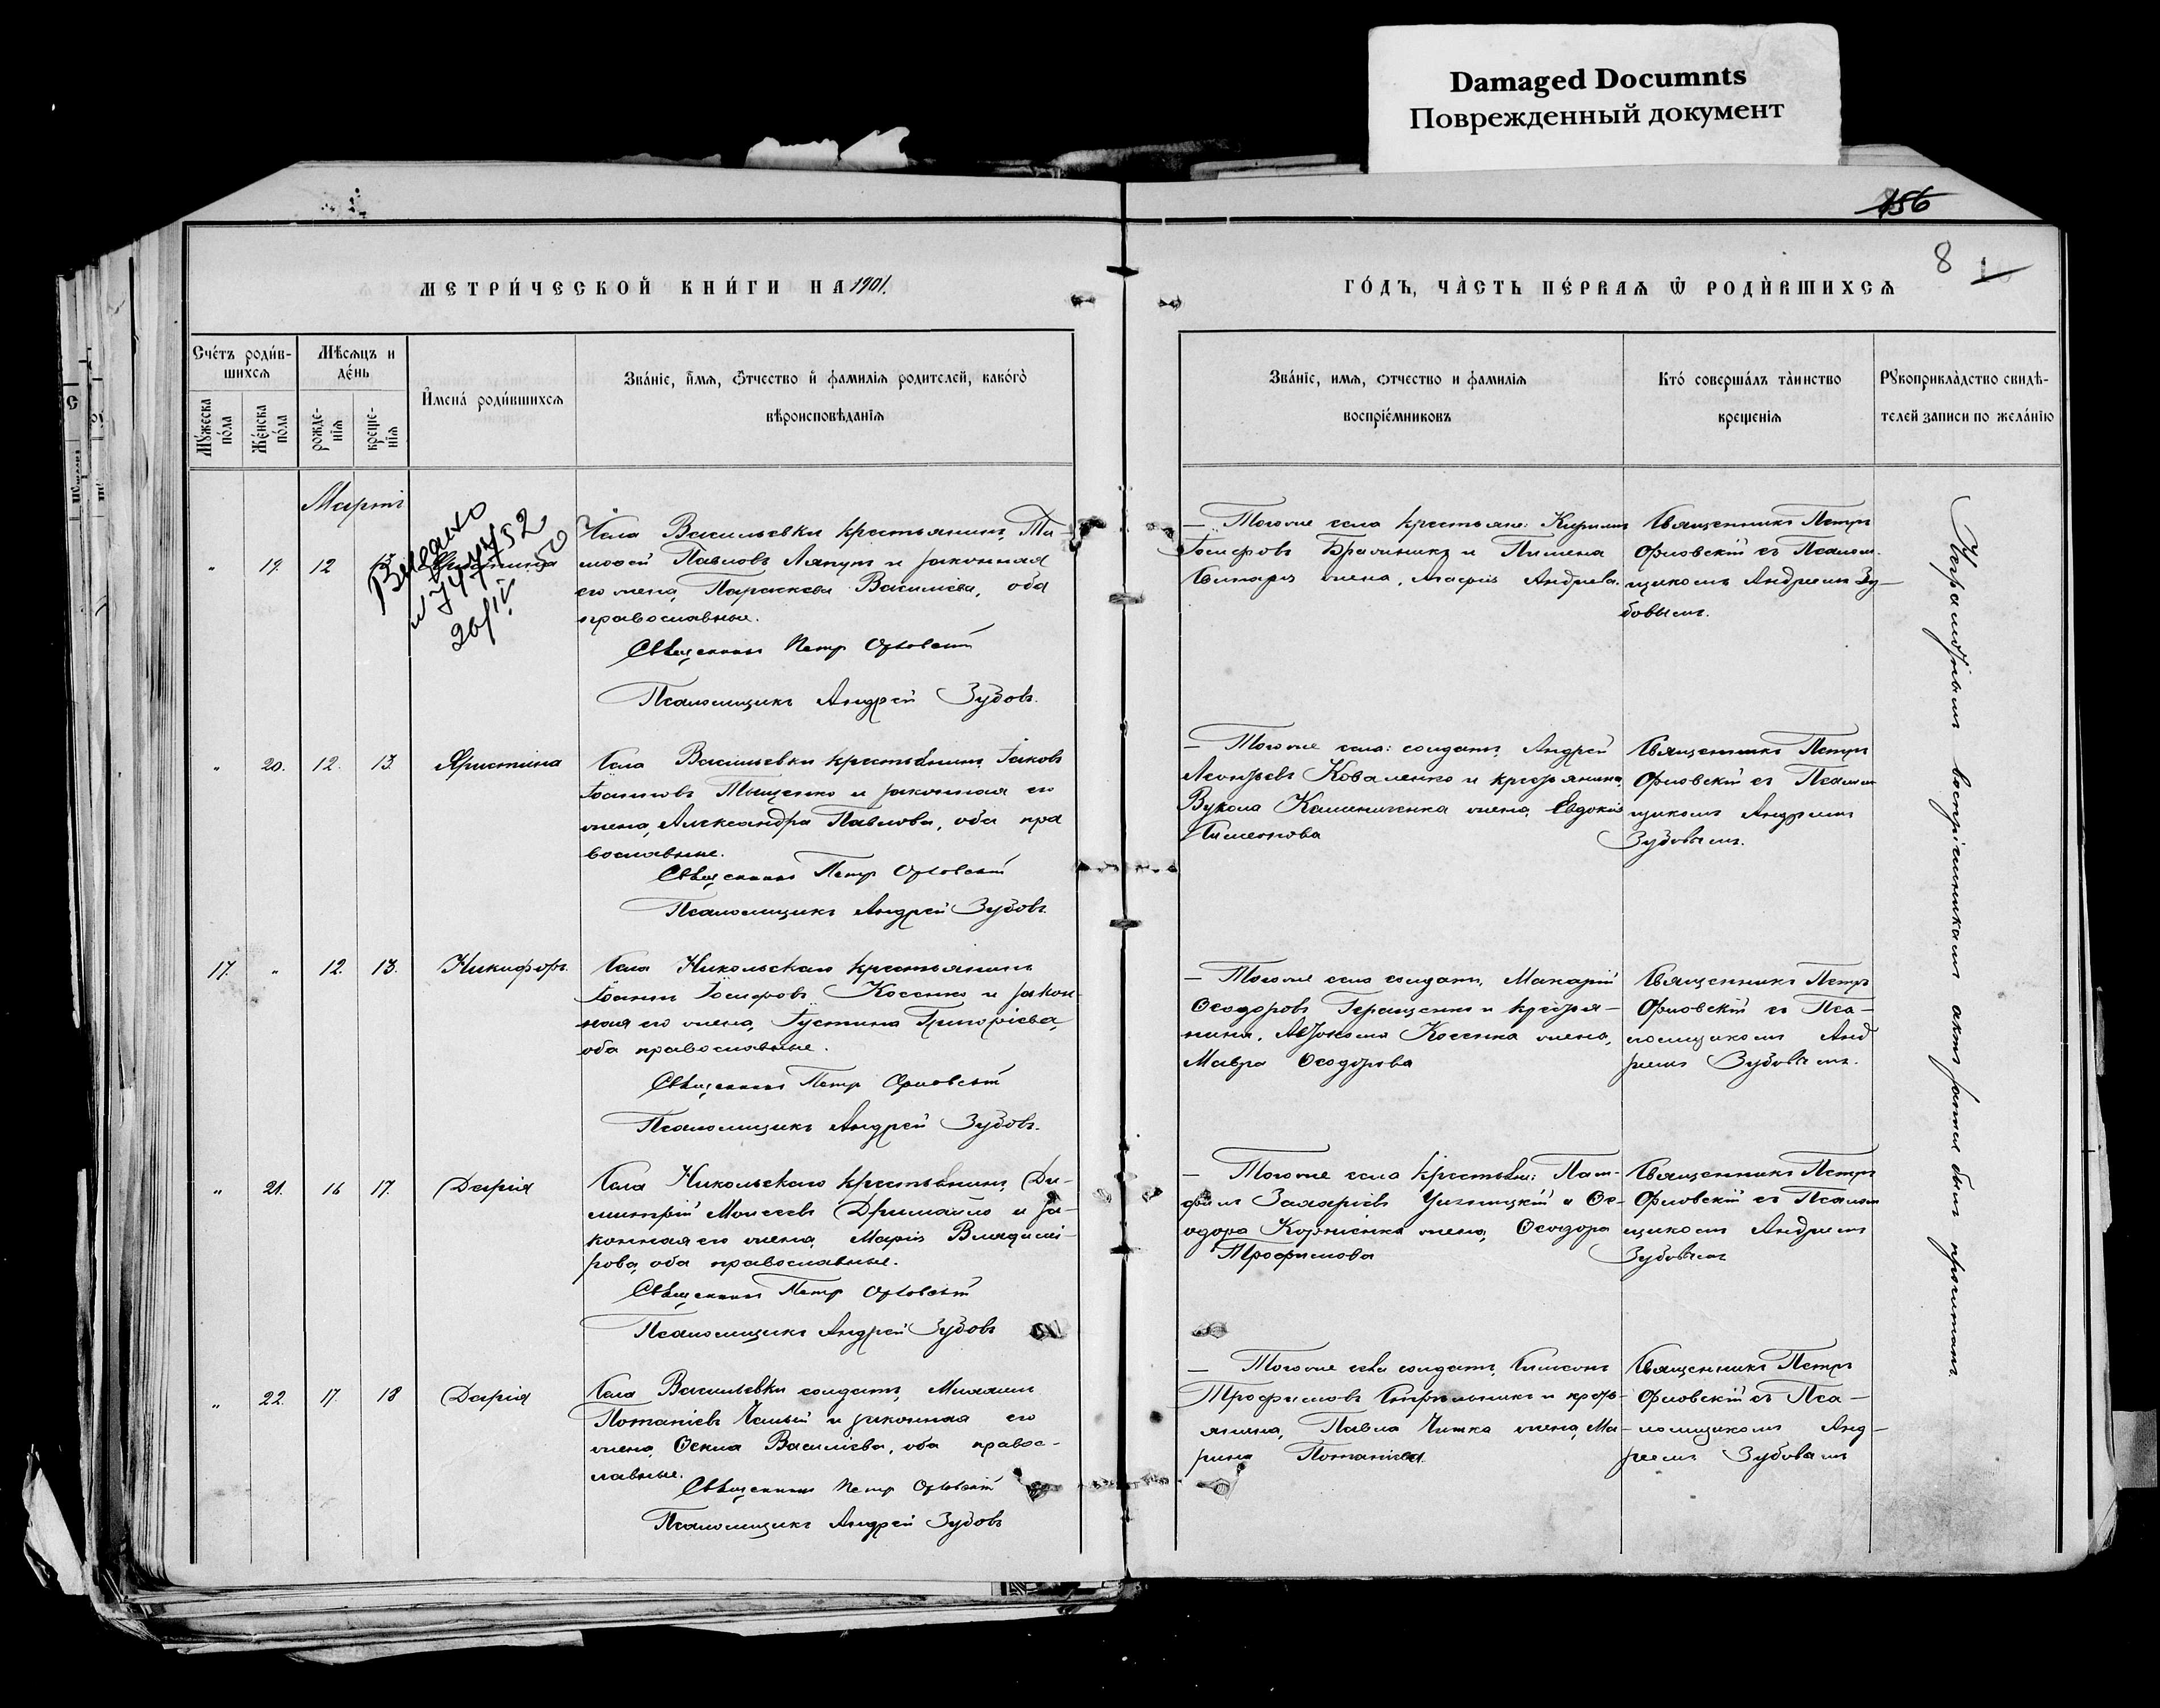 Damaged Documnts
Поврежденный документ
156
8
МЕТРИ́ЧЕСКОЙ КНИ́ГИ НА 1901.
ГО́ДЪ, ЧА̀СТЬ ПЕ́РВАѦ Ѿ РОДЍВШИХСѦ
Сче́тъ роди́в-
шихсѧ
Мꙋ́жеска по́ла
Же́нска по́ла
Мѣ́сѧцъ и
де́нь
рожде-
нїѧ
креще-
нїѧ
И҆мена́ роди́вшихсѧ
Зва́нїе, и҆́мѧ, ѻ҆́тчество и҆ фамилїѧ родителей, како́гѡ
вѣроисповѣ́данїѧ
Зва́нїе, имѧ, ѻтчество и фамилїѧ
воспрїе́мниковъ
Кто́ соверша́лъ та̀инство
крещенїѧ
Рꙋкоприкла́дство свидѣ-
телей записи по жела́нїю
Мартъ
„ 19. 12 13
Выдано
26/IV 50
Села Васильевки крестьянинъ, Ти-
мофей Павловъ Ляпунъ и законная
его жена, Параскева Василіева, оба
православные.
Священникъ Петр Орловскій
Псаломщикъ Андрей Зубовъ.
— Того-же села крестьяне: Кирилъ
Іосифовъ и Пимена
жена, Марія Андреева.
Священникъ Петръ
Орловскій съ Псалом-
щикомъ Андреемъ Зу-
бовымъ.
„ 20. 12. 13. Христина
Села Васильевки крестьянинъ, Іаковъ
Іоанновъ Тыщенко и законная его
жена, Александра Павлова, оба пра
вославные.
Священникъ Петр Орловскій
Псаломщикъ Андрей Зубовъ.
— Того-же села: солдатъ, Андрей
Леонтьевъ Коваленко и крестьянина,
Вукола Калиниченка жена, Евдокія
Пименова
Священникъ Петръ
Орловскій съ Псалом
щикомъ Андреемъ
Зубовымъ.
17. „ 12. 13. Никифоръ.
Села Никольскаго крестьянинъ
Іоаннъ Іосифовъ Косенко и закон-
ная его жена, Іустина Григоріева,
оба православные.
Священникъ Петр Орловскій
Псаломщикъ Андрей Зубовъ.
— Того-же села солдатъ, Макарій
Ѳеодоровъ Геращенко и крестья-
нина, Автонома Косенка жена,
Мавра Ѳеодорова
Священникъ Петръ
Орловскій съ Пса-
ломщикомъ Анд
реемъ Зубовымъ.
„ 21. 16 17. Дарія
Села Никольскаго крестьянинъ, Ди-
митрій Моисеевъ Дримайло и за-
конная его жена, Марія Владимі-
рова, оба православные.
Священникъ Петр Орловскій
Псаломщикъ Андрей Зубовъ
— Того-же села крестьяне: Пам-
филъ Захаріевъ и Ѳе-
одора Корніенка жена, Ѳеодора
Трофимова
Священникъ Петръ
Орловскій съ Псалом
щикомъ Андреемъ
Зубовымъ
„ 22. 17. 18 Дарія
Села Васильевки солдатъ, Михаилъ
Потапіевъ и законная его
жена, Ѳекла Василіева, оба право-
славные.
Священникъ Петр Орловскій
Псаломщикъ Андрей Зубовъ
— Того-же села солдатъ, Симеонъ
Трофимовъ и кресть-
янина, Павла жена, Ма-
рина Потапіева.
Священникъ Петръ
Орловскій съ Пса-
ломщикомъ Анд-
реемъ Зубовымъ
Неграмотнымъ воспріемникамъ актъ записи былъ прочитанъ